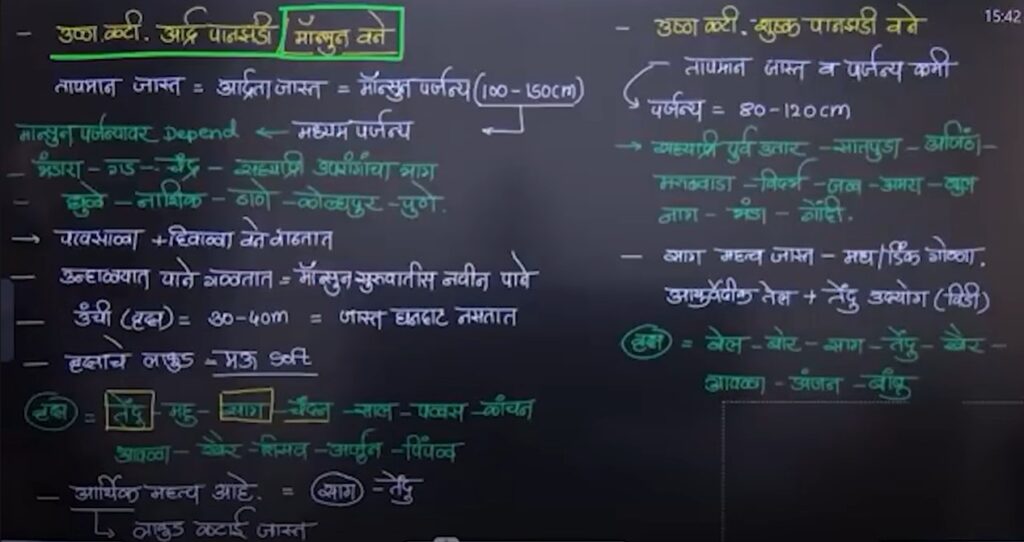 15:42
- उष्ण कटी. आर्द्र पानझडी मॉन्सुन वने
तापमान जास्त = आर्द्रता जास्त = मॉन्सुन पर्जन्य (100-150cm)
मान्सुन पर्जन्यावर Depend ← मध्यम पर्जन्य
- भंडारा - गड - चंद्र - सह्याद्री उपरांगांचा भाग
- धुळे - नाशिक - ठाणे - कोल्हापुर - पुणे.
→ पावसाळा + हिवाळा वने वाढतात
- उन्हाळ्यात पाने गळतात = मॉन्सुन सुरुवातीस नवीन पाने
- उंची (वृक्ष) = 30-40m = जास्त घनदाट नसतात
- वृक्षाचे लाकुड - मऊ soft
वृक्ष = तेंदु - महु - साग - चंदन - साल - पळस - कांचन
आवळा - खैर - शिसव - अर्जुन - पिंपळ
- आर्थिक महत्व आहे. = साग - तेंदु
↳ लाकुड कटाई जास्त
- उष्ण कटी. शुष्क पानझडी वने
तापमान जास्त व पर्जन्य कमी
पर्जन्य = 80-120cm
→ सह्याद्री पुर्व उतार - सातपुडा - अजिंठा -
मराठवाडा - विदर्भ - जळ - अमरा - बुल
नाग - भंडा - गोंदी.
- साग महत्व जास्त - मध/डिंक गोळा.
आयुर्वेदीक तेल + तेंदु उद्योग (बिडी)
वृक्ष = बेल - बोर - साग - तेंदु - खैर -
आवळा - अंजन - बांबु